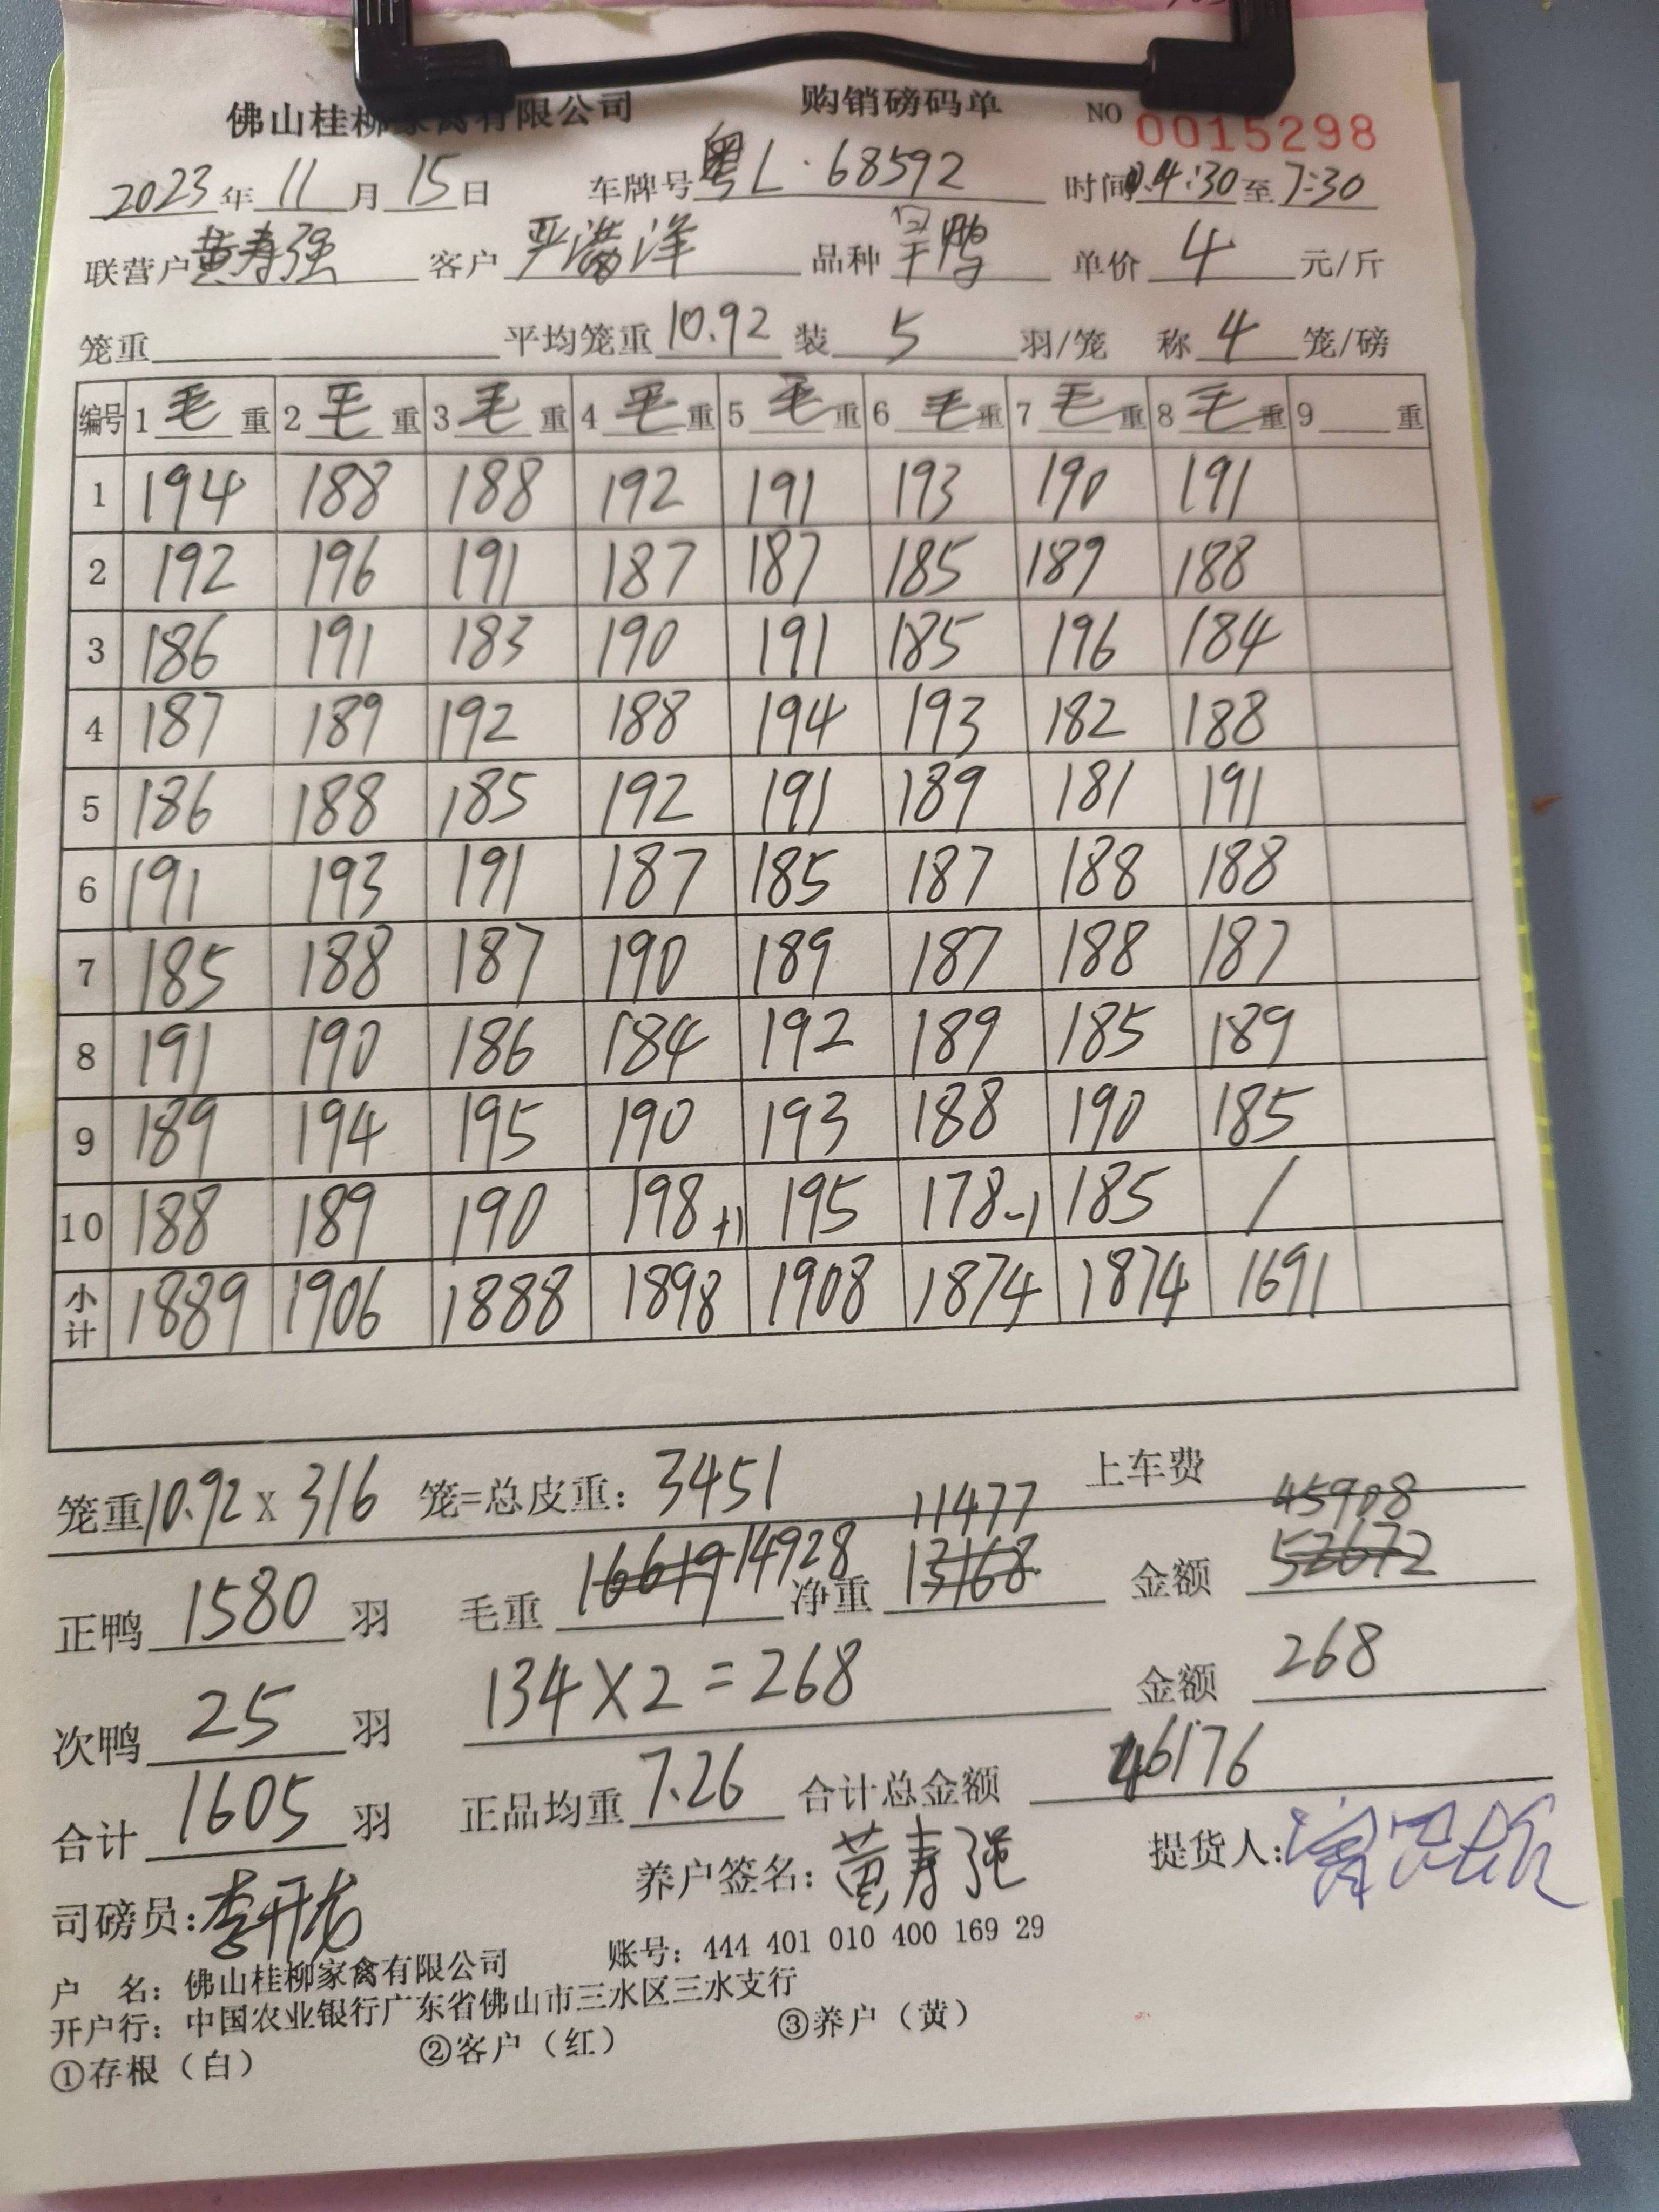 佛山桂柳家禽有限公司 购销磅码单 NO 0015298
2023年11月15日 车牌号粤L·68592 时间4:30至7:30
联营户黄寿强 客户严满洋 品种 单价4元/斤
笼重 平均笼重10.92装5羽/笼 称4笼/磅
编号 1毛重 2毛重 3毛重 4毛重 5毛重 6毛重 7毛重 8毛重 9重
1 194 188 188 192 191 193 190 191
2 192 196 191 187 187 185 189 188
3 186 191 183 190 191 185 196 184
4 187 189 192 188 194 193 182 188
5 186 188 185 192 191 189 181 191
6 191 193 191 187 185 187 188 188
7 185 188 187 190 189 187 188 187
8 191 190 186 184 192 189 185 189
9 189 194 195 190 193 188 190 185
10 188 189 190 198+1 195 178-1 185 /
小计 1889 1906 1888 1898 1908 1874 1874 1691
笼重10.92×316笼=总皮重:3451 上车费
11477 45908
正鸭1580羽 毛重16619 14928 净重13168 金额52672
次鸭25羽 134×2=268 金额268
合计1605羽 正品均重7.26 合计总金额46176
司磅员: 养户签名:黄寿强 提货人:
户 名:佛山桂柳家禽有限公司 账号:444 401 010 400 169 29
开户行:中国农业银行广东省佛山市三水区三水支行
①存根(白) ②客户(红) ③养户(黄)